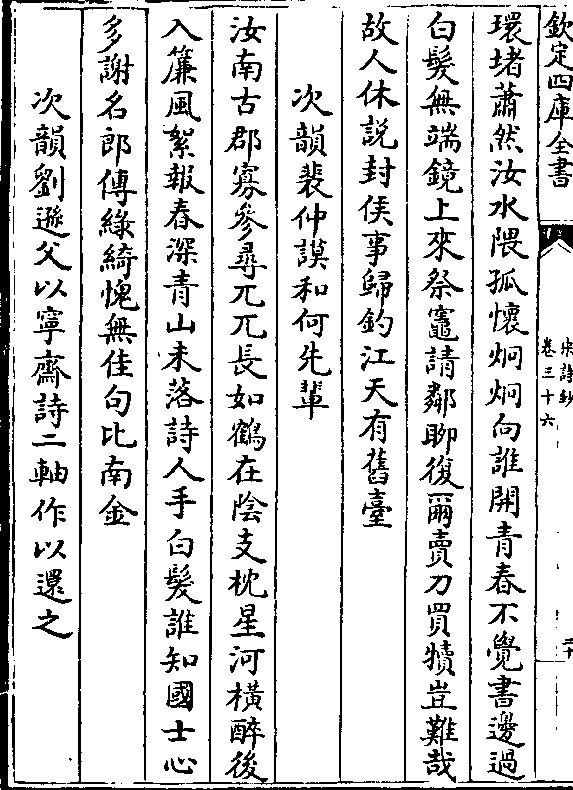 欽定四庫全書
宋詩鈔
卷三十六
二十
環堵蕭然汝水隈孤懷炯炯向誰開青春不覺書邊過
白髮無端鏡上來祭竈請鄰聊復爾賣刀買犢豈難哉
故人休說封侯事歸釣江天有舊臺
次韻裴仲謨和何先輩
汝南古郡寡參尋兀兀長如鶴在陰支枕星河橫醉後
入簾風絮報春深青山未落詩人手白髮誰知國士心
多謝名郎傳綠綺愧無佳句比南金
次韻劉遜父以寧齋詩二軸作以還之